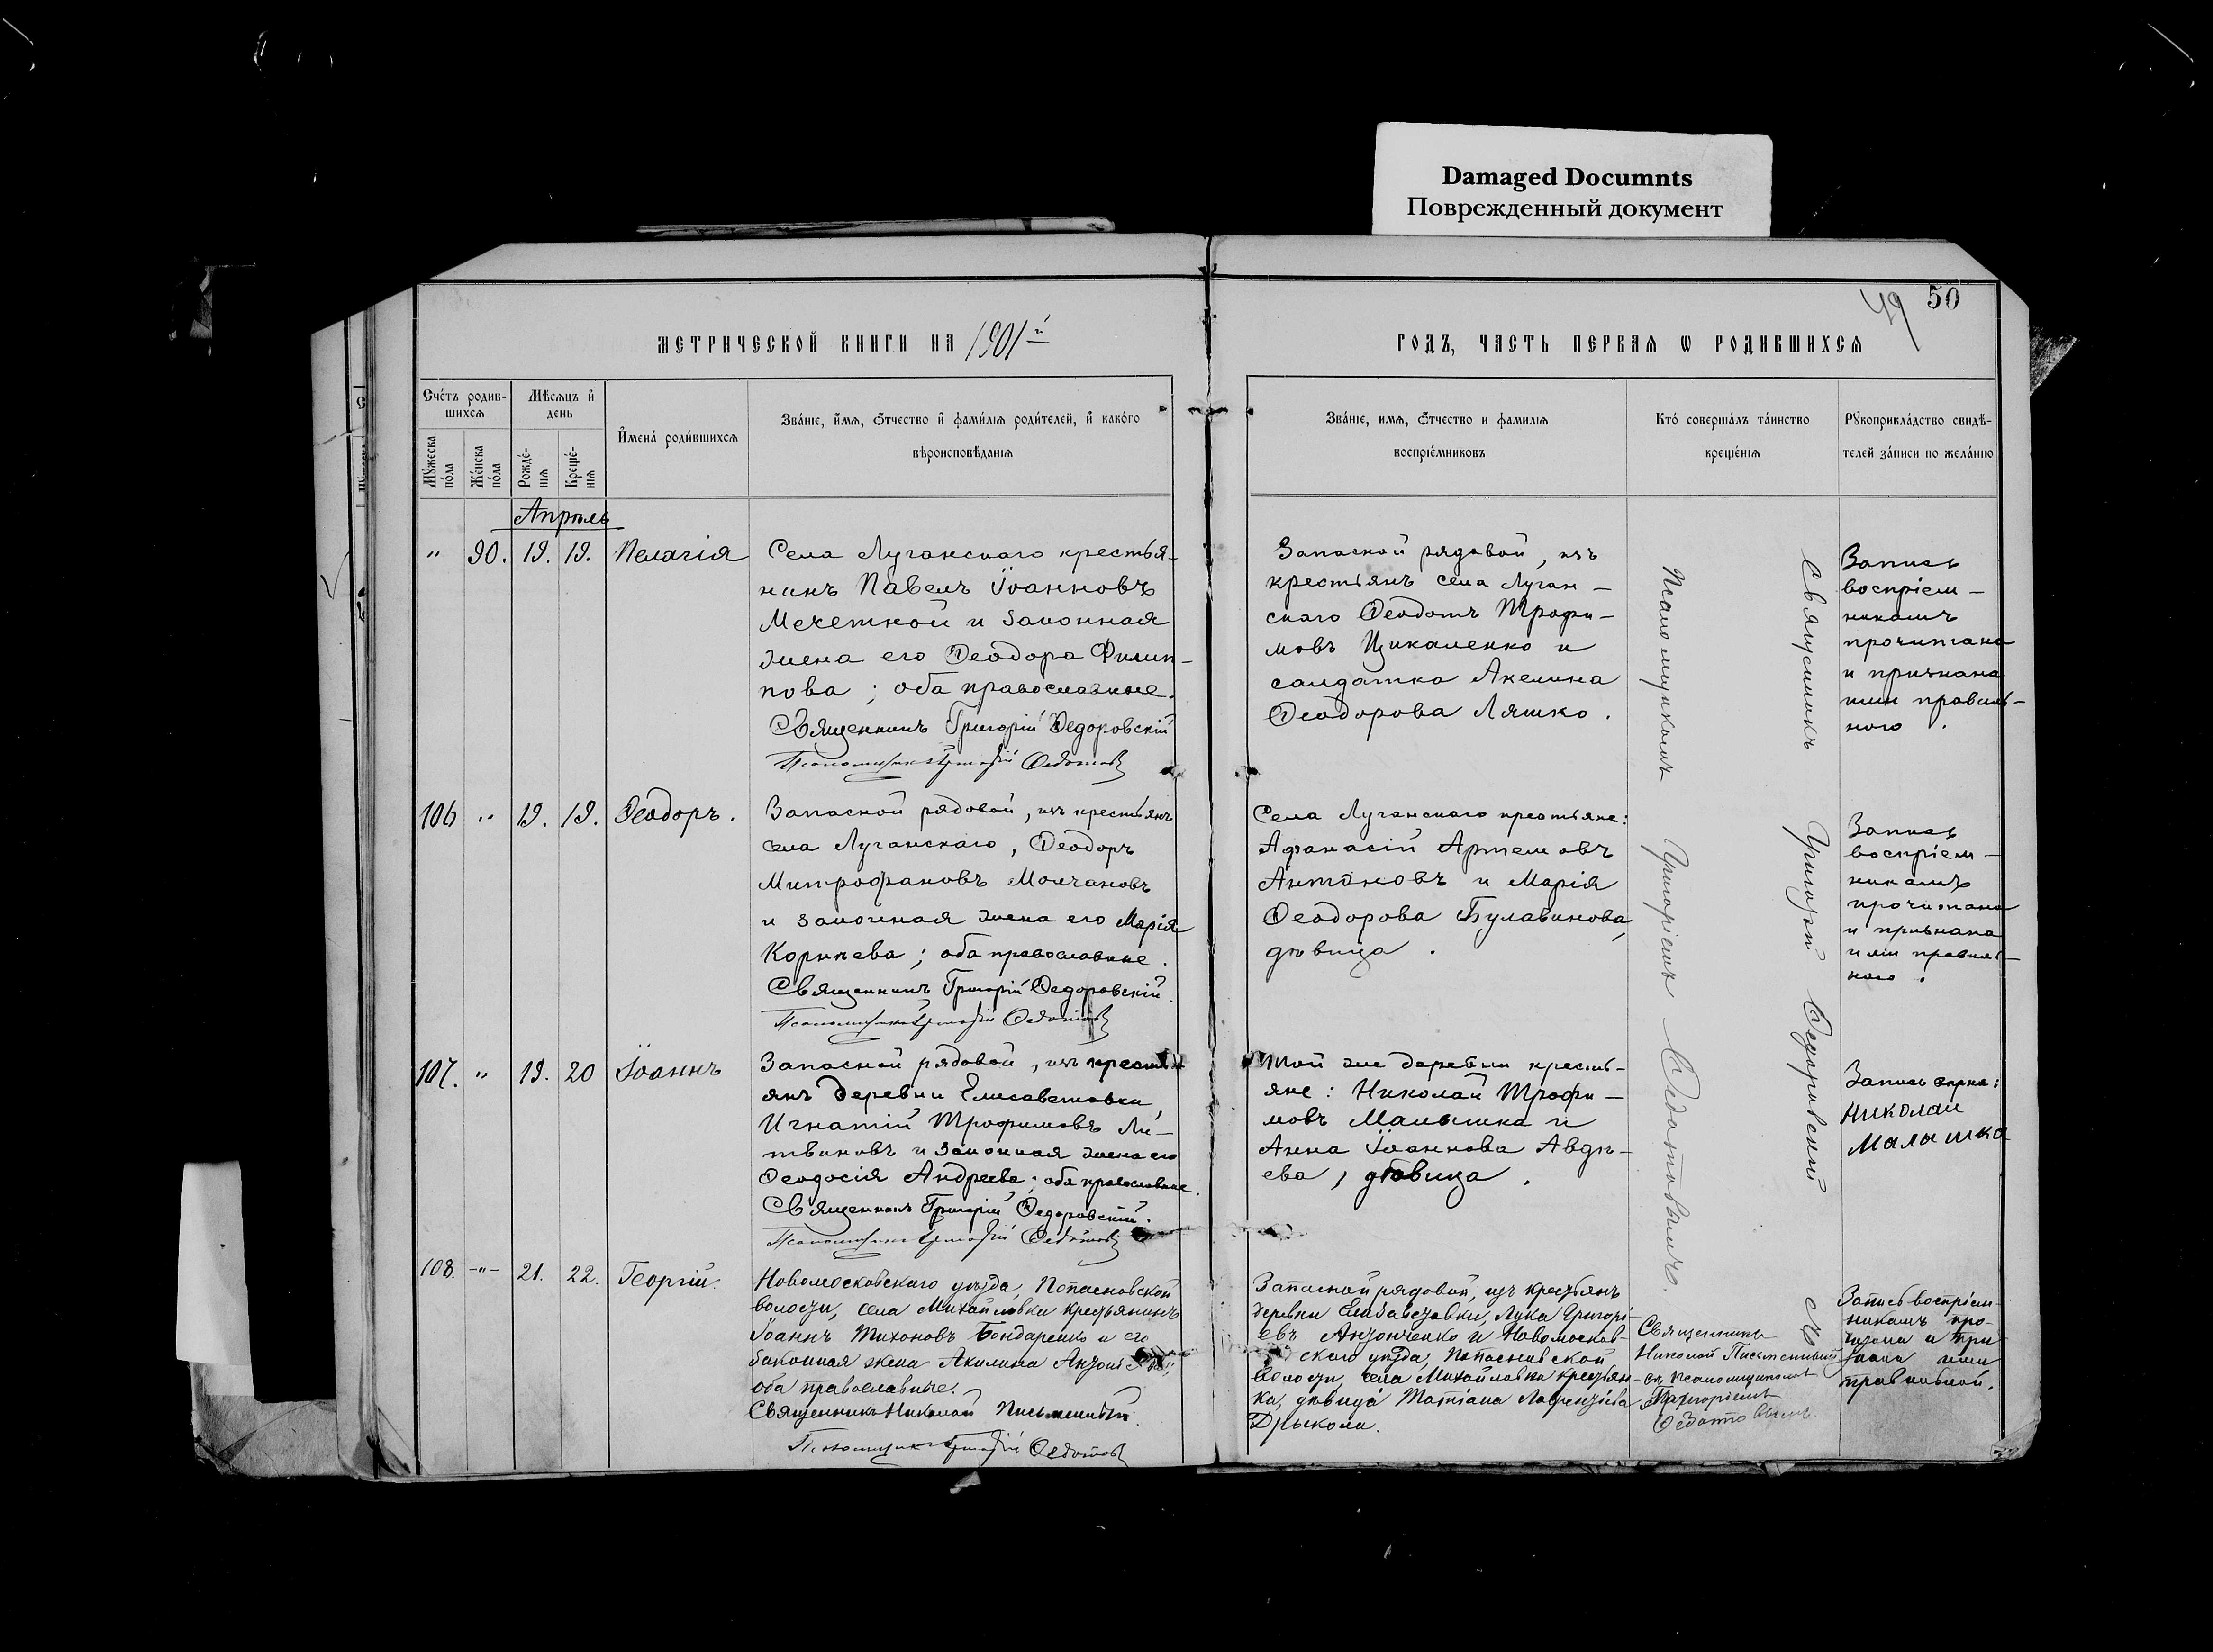 Damaged Documnts
Поврежденный документ
49 50
МЕТРИЧЕСКОЙ КНИГИ НА 1901й
ГОДЪ, ЧАСТЬ ПЕРВАЯ Ѡ РОДИВШИХСЯ
Счетъ родив-
шихся
Мѣсяцъ и
день
Мужеска
пола
Женска
пола
Рожде-
нія
Креще-
нія
Имена родившихся
Званіе, имя, отчество и фамилія родителей, и какого
вѣроисповѣданія
Званіе, имя, отчество и фамилія
воспріемниковъ
Кто совершалъ таинство
крещенія
Рукоприкладство свидѣ-
телей записи по желанію
Апрѣль
" 90. 19. 19. Пелагія
Села Луганскаго крестья-
нинъ Павелъ Іоанновъ
Мечеткой и законная
жена его Ѳеодора Филип-
пова; оба православные.
Священникъ Григорій Ѳедоровскій
Псаломщикъ Григорій Ѳедотовъ
Запасной рядовой, изъ
крестьянъ села Луган-
скаго Ѳеодотъ Трофи-
мовъ Цикаленко и
солдатка Акелина
Ѳеодорова Ляшко.
Запись
воспріем-
никамъ
прочитана
и признана
ими правиль-
ною.
106 " 19. 19. Ѳеодоръ.
Запасной рядовой, изъ крестьянъ
села Луганскаго, Ѳеодоръ
Митрофановъ Молчановъ
и законная жена его Марія
Корнѣева; оба православные.
Священникъ Григорій Ѳедоровскій.
Псаломщикъ Григорій Ѳедотовъ
Села Луганскаго крестьяне:
Аѳанасій Артемовъ
Антоновъ и Марія
Ѳеодорова Булавинова,
дѣвица.
Запись
воспріем-
никамъ
прочитана
и признана
ими правиль-
ною.
107. " 19. 20 Іоаннъ
Запасной рядовой, изъ кресть-
янъ деревни Елисаветовки,
Игнатій Трофимовъ Ли-
твиновъ и законная жена его
Ѳеодосія Андреева; оба православные.
Священникъ Григорій Ѳедоровскій.
Псаломщикъ Григорій Ѳедотовъ
Той же деревни кресть-
яне: Николай Трофи-
мовъ Малышка и
Анна Іоаннова Авдѣ-
ева, дѣвица.
Запись вѣрна:
Николай
Малышка
Священникъ Григорій Ѳедоровскій съ
Псаломщикомъ Григоріемъ Ѳедотовымъ.
108. -"- 21. 22. Георгій.
Новомосковскаго уѣзда, Попасновской
волости, села Михайловки крестьянинъ
Іоаннъ Тихоновъ Бондаренко и его
законная жена Акилина
оба православные.
Священникъ Николай Письменный.
Псаломщикъ Григорій Ѳедотовъ
Запасной рядовой, изъ крестьянъ
деревни Елизаветовки, Лука Григорі-
евъ Антонченко и Новомосков-
скаго уѣзда, Попасновской
волости, села Михайловки крестьян-
ка, дѣвица Татіана Лаврентіева
Дрыкола.
Священникъ
Николай Письменный
съ псаломщикомъ
Григоріемъ
Ѳедотовымъ.
Запись воспріем-
никамъ про-
читана и при-
знана ими
правильной.